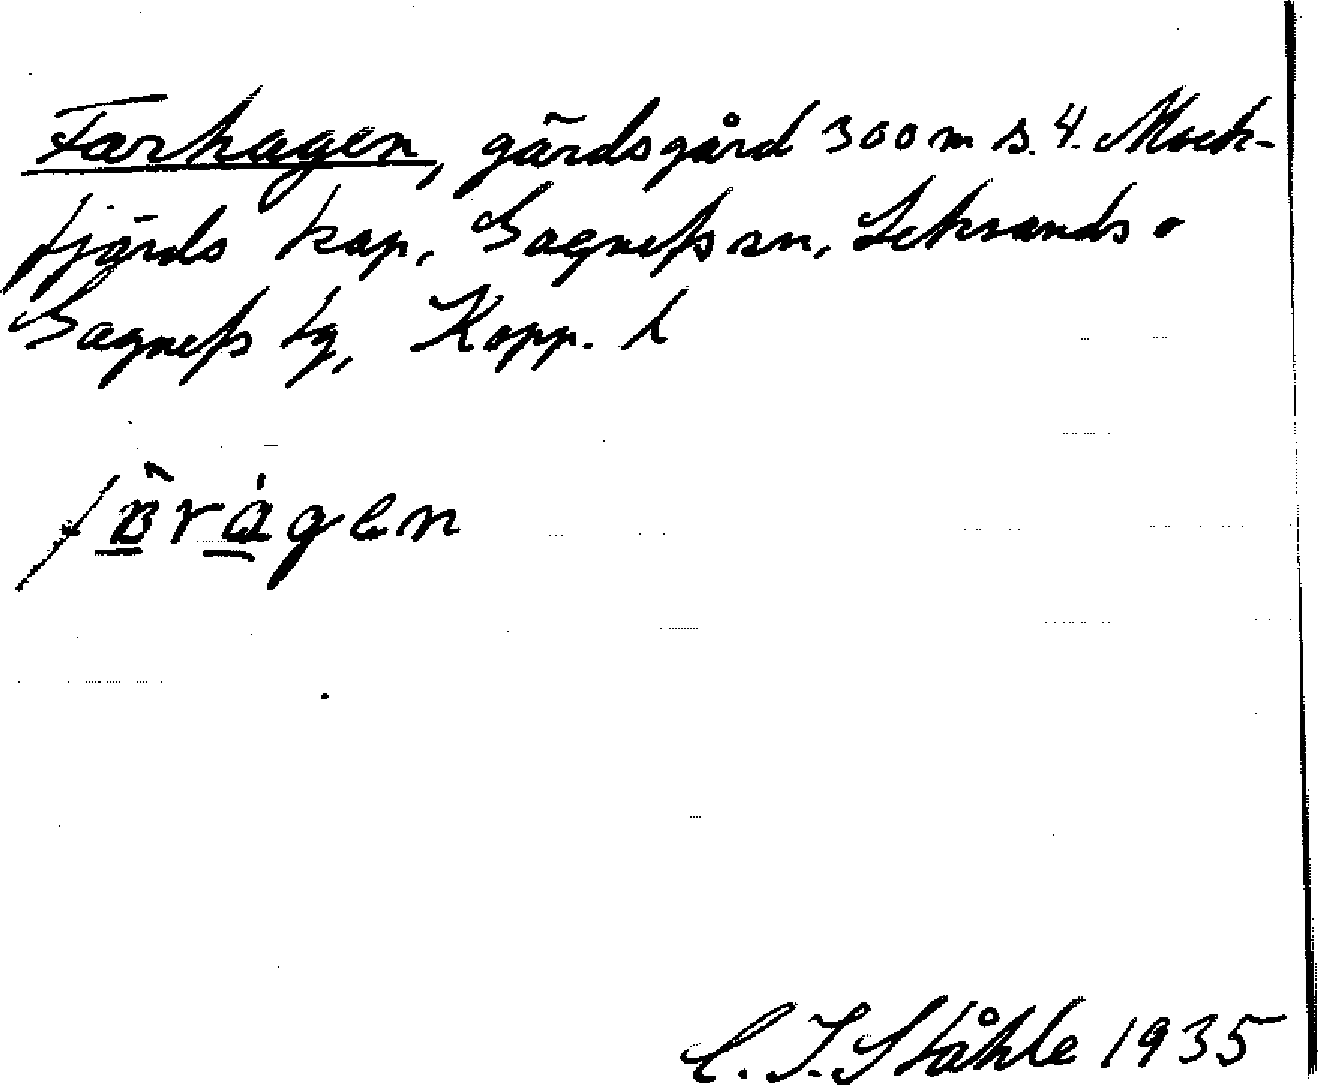 Farhagen, gärdsgård 300 m s. 4. Mock-
fjärds kap, Gagnefs sn, Leksands o
Gagnefs tg, Kopp. l
fàrágen
C. I. Ståhle 1935